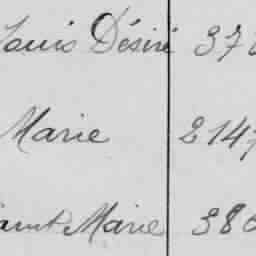 Louis Désiré 378
Marie 2147
Saint Marie 380